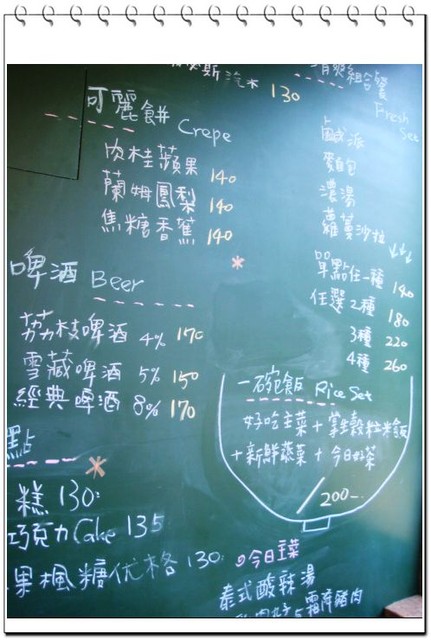 斯汽水 130
可麗餅 Crepe
肉桂蘋果 140
蘭姆鳳梨 140
焦糖香蕉 140
啤酒 Beer
荔枝啤酒 4% 170
雪藏啤酒 5% 150
經典啤酒 8% 170
點
糕 130
巧克力Cake 135
果楓糖优格 130
組合餐
Fresh Set
鹹派
麵包
濃湯
蘿蔓沙拉
單點任一種 140
任選2種 180
3種 220
4種 260
一碗飯 Rice Set
好吃主菜+養生穀粒米飯
+新鮮蔬菜+今日好菜
200-
今日主菜
泰式酸辣湯
豬肉